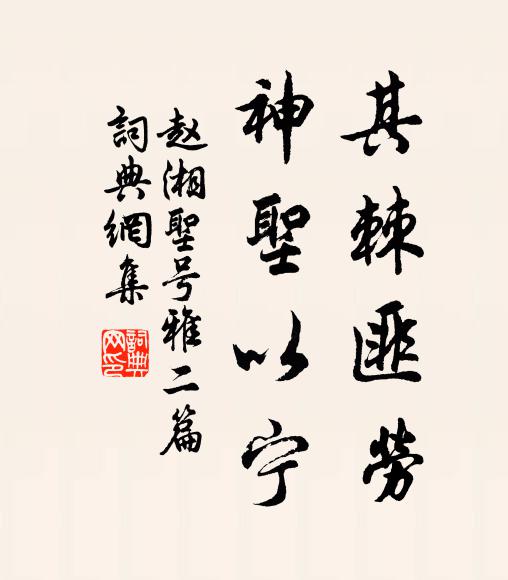 其棘匪勞
神聖以宁
赵湘聖号雅二篇
詞典網集
詞典网印